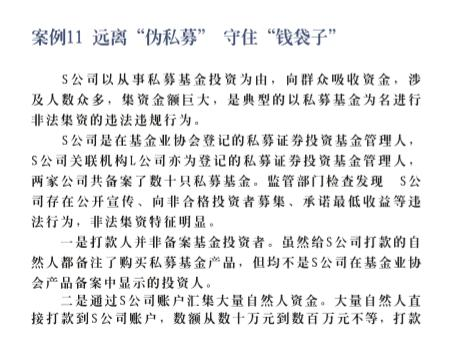 案例11 远离“伪私募” 守住“钱袋子”
S公司以从事私募基金投资为由，向群众吸收资金，涉
及人数众多，集资金额巨大，是典型的以私募基金为名进行
非法集资的违法违规行为。
S公司是在基金业协会登记的私募证券投资基金管理人，
S公司关联机构L公司亦为登记的私募证券投资基金管理人，
两家公司共备案了数十只私募基金。监管部门检查发现 S公
司存在公开宣传、向非合格投资者募集、承诺最低收益等违
法行为，非法集资特征明显。
一是打款人并非备案基金投资者。虽然给S公司打款的自
然人都备注了购买私募基金产品，但均不是S公司在基金业协
会产品备案中显示的投资人。
二是通过S公司账户汇集大量自然人资金。大量自然人直
接打款到S公司账户，数额从数十万元到数百万元不等，打款